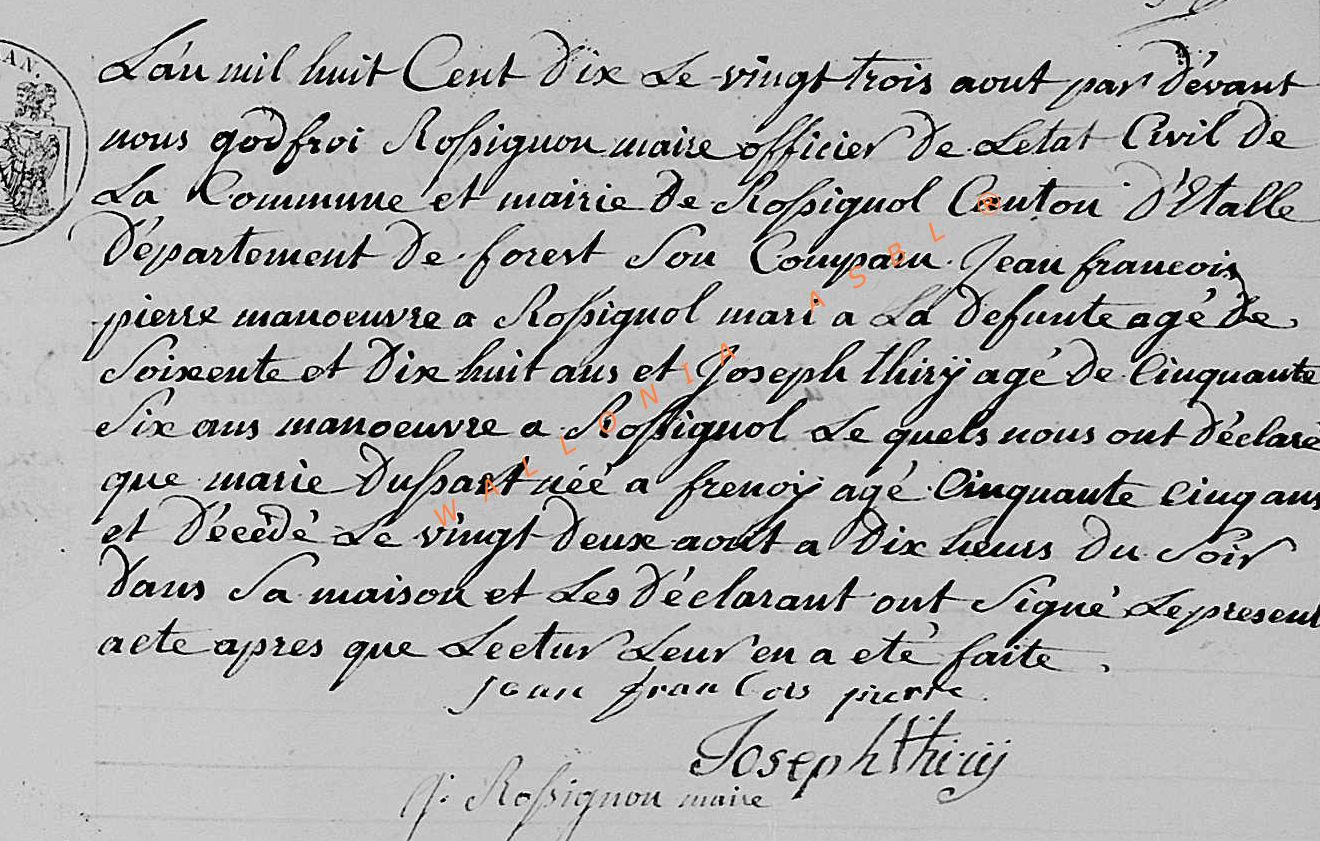 AN.
L'an mil huit Cent Dix Le vingt trois aout par dévant
nous godfroi Rossignon maire officier De Letat Civil de
La Commune et mairie De Rossignol Canton D'Etalle
Département De forest Son Comparu Jean francois
pierre manoeuvre a Rossignol mari a La Defunte agé de
Soixente et Dix huit ans et Joseph thirÿ agé De Cinquante
Six ans manoeuvre a Rossignol Le quels nous ont Déclaré
que marie Dussart néé a frenoÿ agé Cinquante Cinq ans
et Décédé Le vingt Deux aout a Dix heurs Du Soir
Dans Sa maison et Les Déclarant ont Signé Le present
acte apres que Lectur Leur en a eté faite
Jean francois pierre
Joseph thirij
g: Rossignon maire
WALLONIA ASBL ®